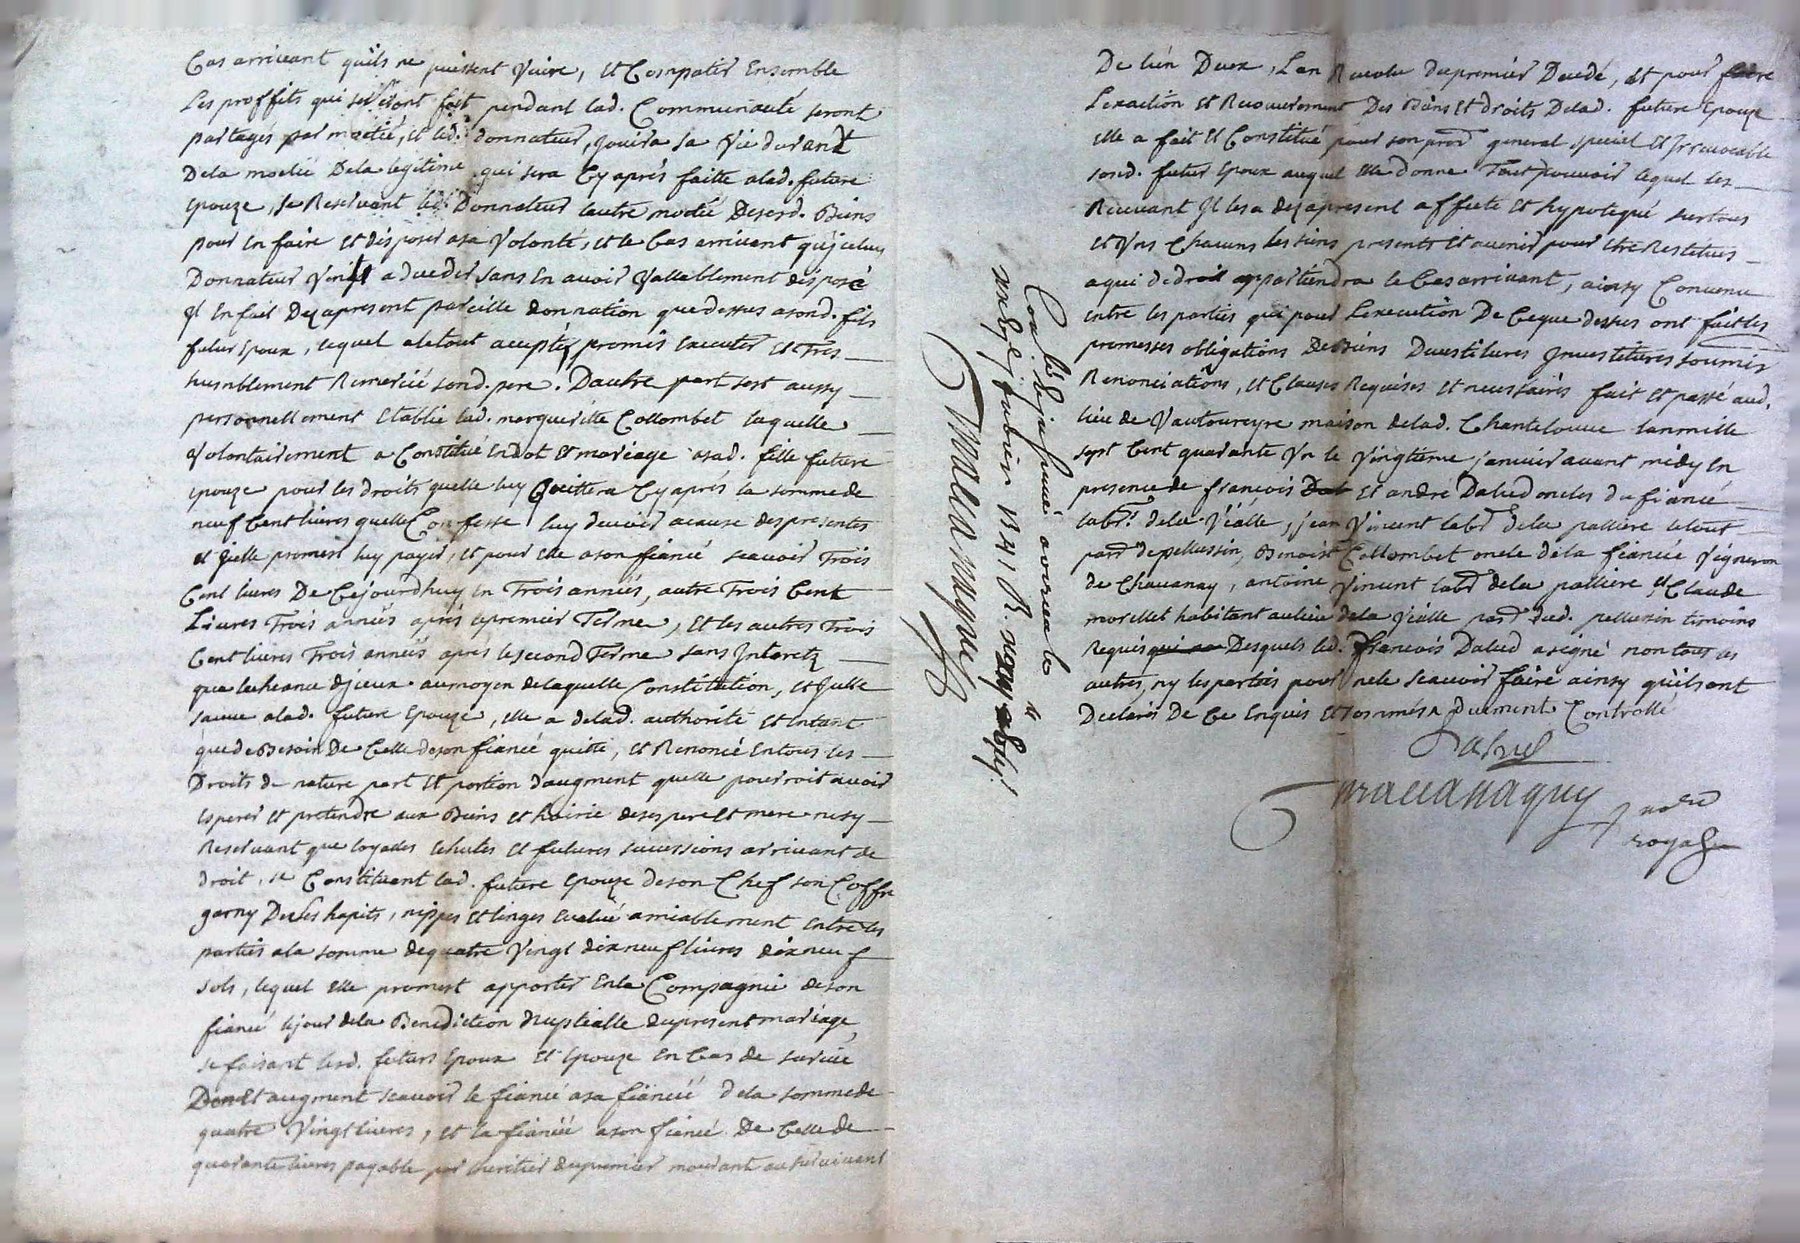 Cas arrivant quils ne puissent vivre, et Compatir Ensemble
Les proffits qui se seront fait pendant lad. Communauté seront
partages par moetié, et led. donnateur, jouira sa vie durant
De la moetié De la legitime qui sera Cy aprés faitte a lad. future
epouze, se Reservant led. Donnateur lautre moetié Desesd. Biens
pour En faire et disposer asa volonté, et le Cas arrivant qu'jceluy
Donnateur vint a deceder sans En avoir vallablement disposé
Jl En fait Dezapresent pareille donnation que dessus asond. fils
futur Epoux, lequel a le tout accepté, promis Executer Et Tres
humblement Remercié sond. pere. Dautre part sest aussy
personnellement Etablie lad. margueritte Collombet laquelle
volontairement a Constitué En dot et mariage asad. fille future
epouze pour les droits quelle luy Quittera Cy aprés la somme de
neuf Cent livres quelle Confesse luy devoir acause des presentes
et jcelle promest luy payer, et pour elle a son fiancé scavoir Trois
Cent livres De Cejourdhuy En Trois années, autre Trois Cent
Livres Trois années aprés le premier Terme, Et les autres Trois
Cent livres Trois années apres le second Terme sans Jnteretz
que lecheance djceux au moyen de laquelle Constitution, et jcelle
sauve alad. future Epouze, elle a delad. authorité et En tant
que de Besoin De Celle de son fiancé quitté, et Renoncé En tous les
Droits de nature part Et portion daugment quelle pourroit avoir
Esperer et pretendre aux Biens et hoirie de ses pere Et mere nesy
Reservant que loyalles Echutes et futures successions arrivant de
droit, se Constituant lad. future Epouze de son Chef son Coffre
garny De ses hapits, nippes et linges Evalué amiablement Entre les
parties ala somme de quatre vingt dix neuf livres dix neuf
sols, lequel elle promest apporter En la Compagnie de son
fiancé le jour dela Benediction Nuptialle du present mariage
se faisant lesd. futurs Epoux et Epouze en Cas de survie
Don Et augment scavoir le fiancé asa fiancée dela somme de
quatre vingt livres, et la fiancée a son fiancé De Celle de
quarante livres payable par lheritier du premier mourant au survivant
Con.lé & jnsinué a virieu le
janvier 1741 R.
mallanagny
De lun Deux, Lan Revolu du premier Decedé, Et pour faire
Lexaction Et Recouvrement Des Biens Et droits Delad. future Epouze
elle a fait Et Constitué pour son procr. general special Et Jrrevocable
sond. futur Epoux auquel elle donne Tout pouvoir lequel les
Recevant Jl les a dezapresent affecté Et hypotequé sur tous
et Uns Chacuns les siens presents et avenir pour Etre Restitués
a qui de droit appartiendra le Cas arrivant, ainsy Convenu
Entre les parties qui pour Lexecution De Ceque dessus ont fait les
promesses obligations De Biens Devestitures Jnvestitures soumis
Renonciations, et Clauses Requises Et necessaires fait et passé aud.
lieu de Vautoureyre maison delad. Chantelouve Lan mille
sept Cent quarante Vn le vingtieme janvier avant midy En
presence de francois Et andré Dalud oncles du fiancé
labr. dela vialle, jean Vincent labr. dela pallière le tout
parr. de pellussin, Benoist Collombet oncle de la fiancée vigneron
de Chavanay, antoine Vincent labr. dela pallière, & Claude
morellet habitant au lieu dela vialle parr. dud. pellussin temoins
Requis Desquels led. francois Dalud a signé non tous les
autres, ny les parties pour ne le scavoir faire ainsy quils ont
Declarés De Ce Enquis Et sommés Duement Controllé
Dalud
mallanagny
nore
royal